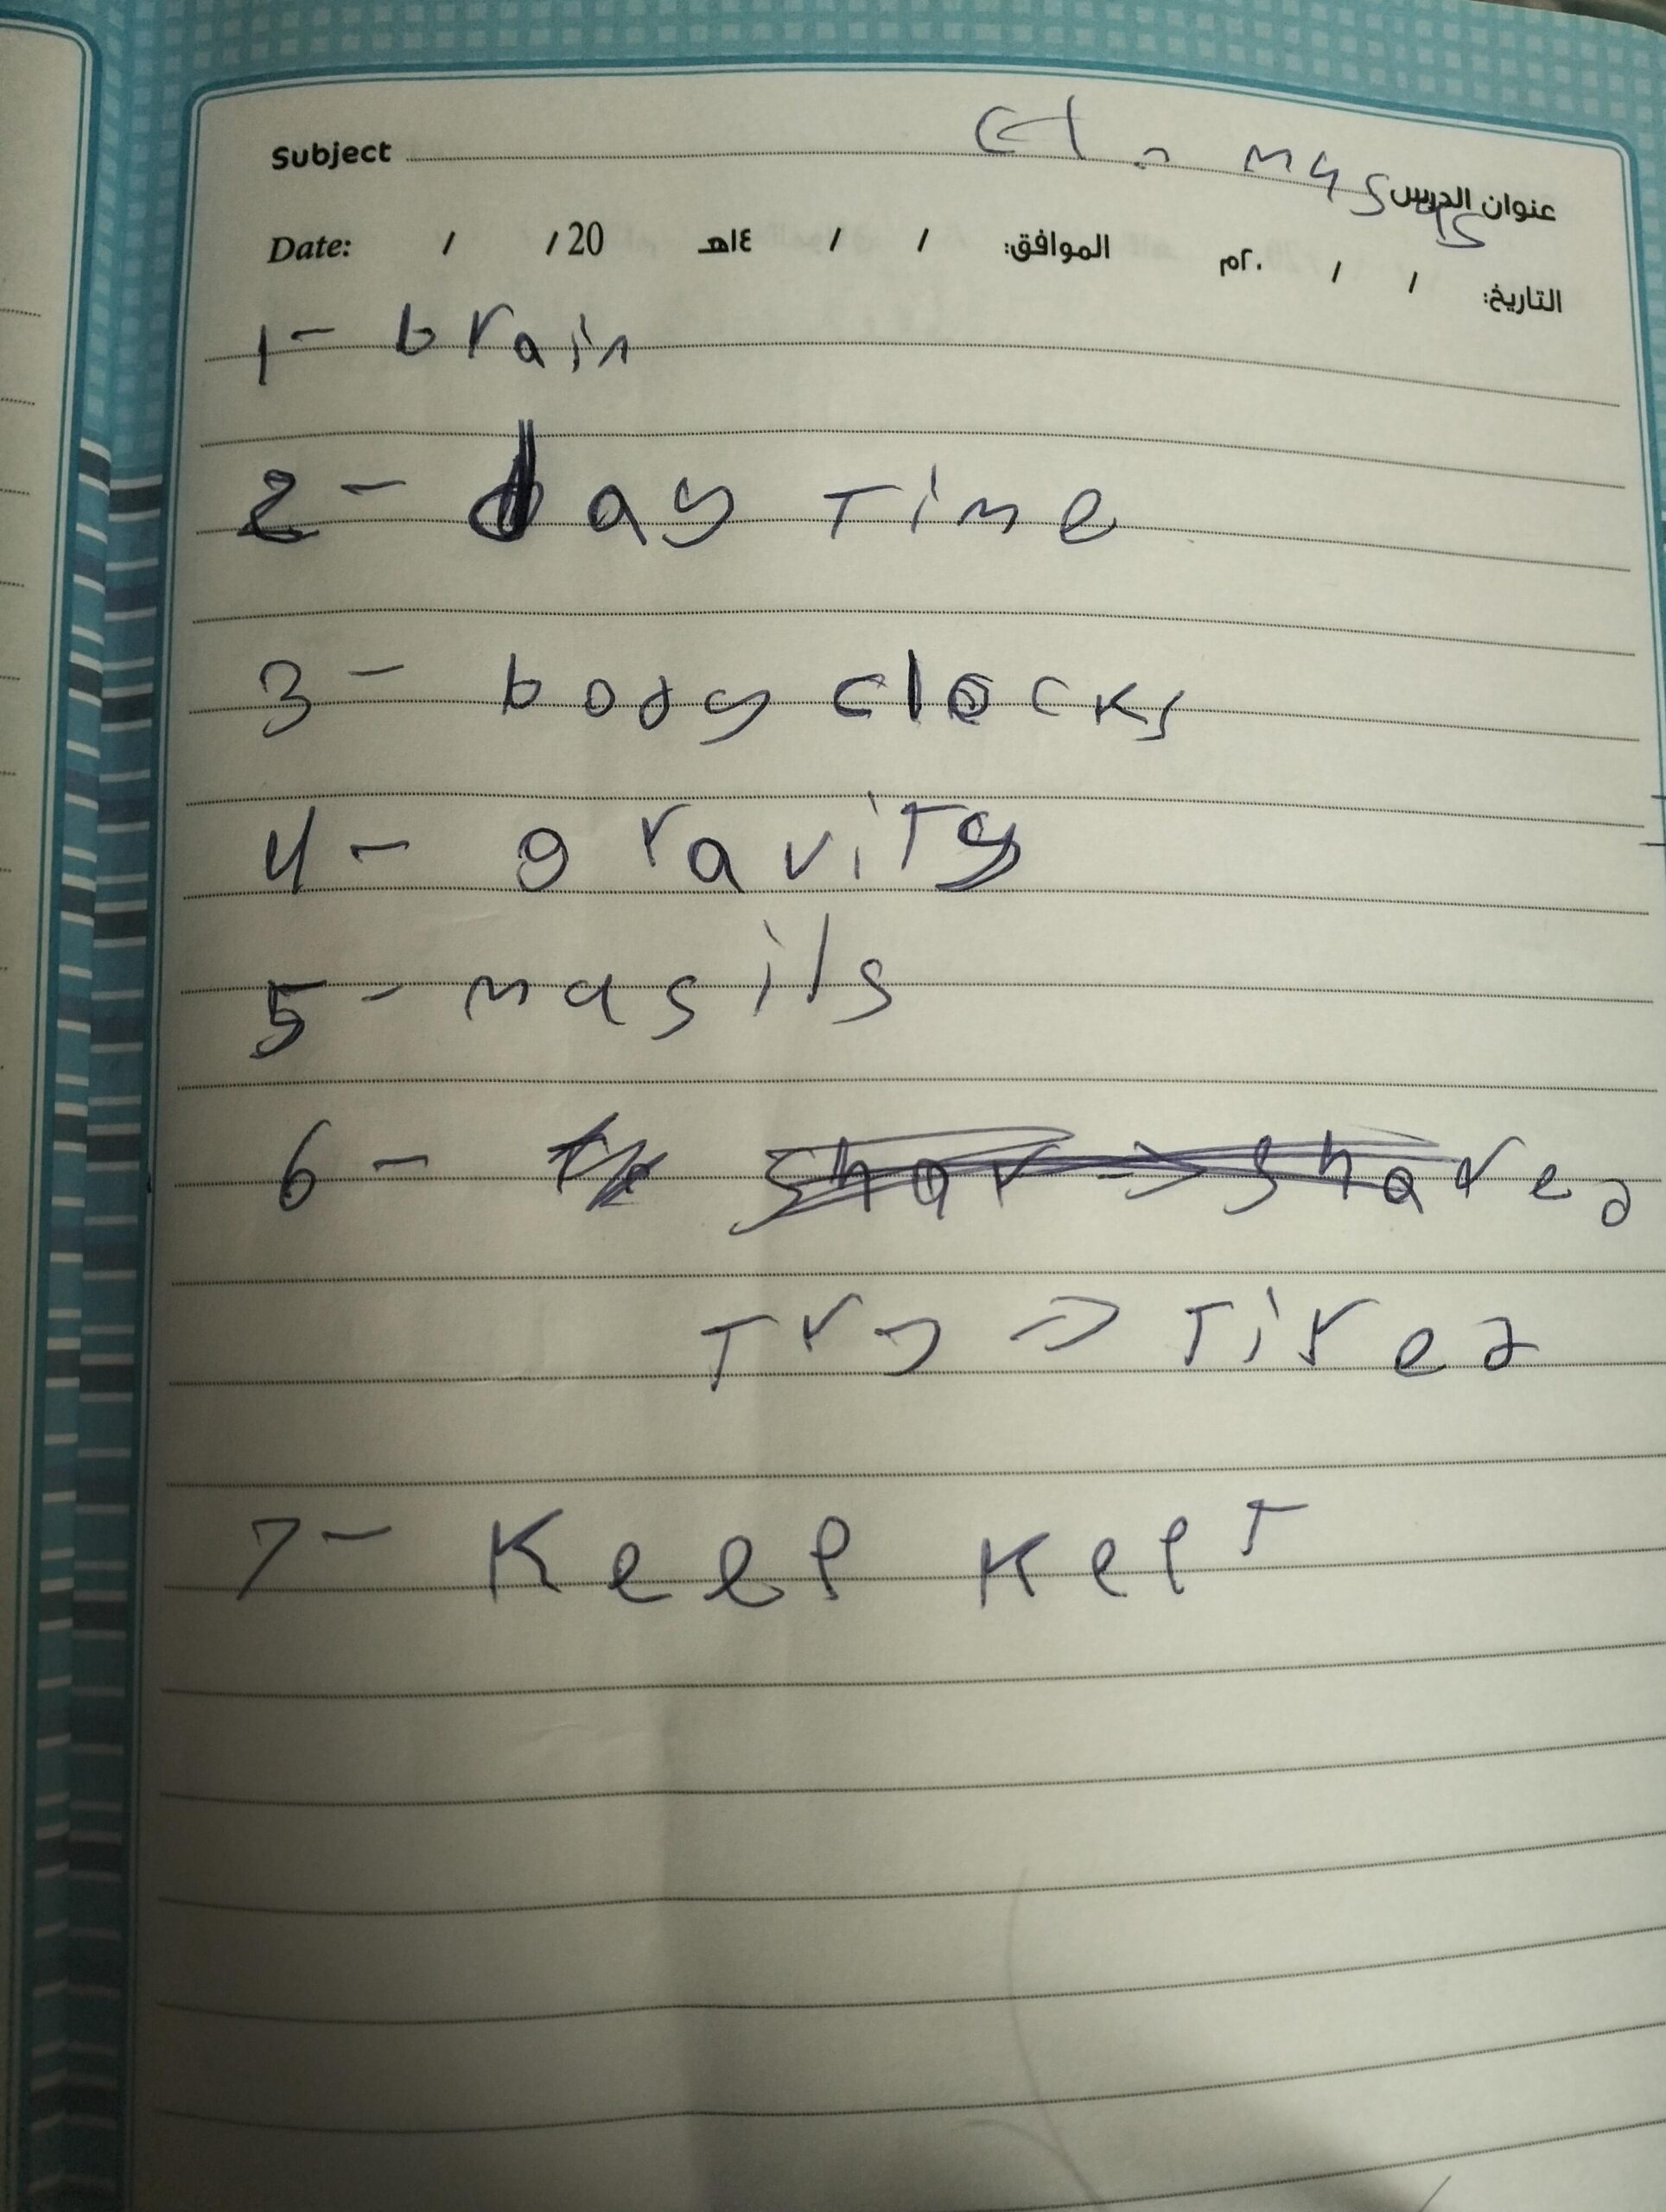 Subject
عنوان الدرس
Date: / / 20 ١٤هـ / / الموافق: ٢٠م / / التاريخ:
1- brain
2- day Time
3- body clocks
4- gravity
5- masils
6- shar → shared
Try → Tired
7- Keep Kept